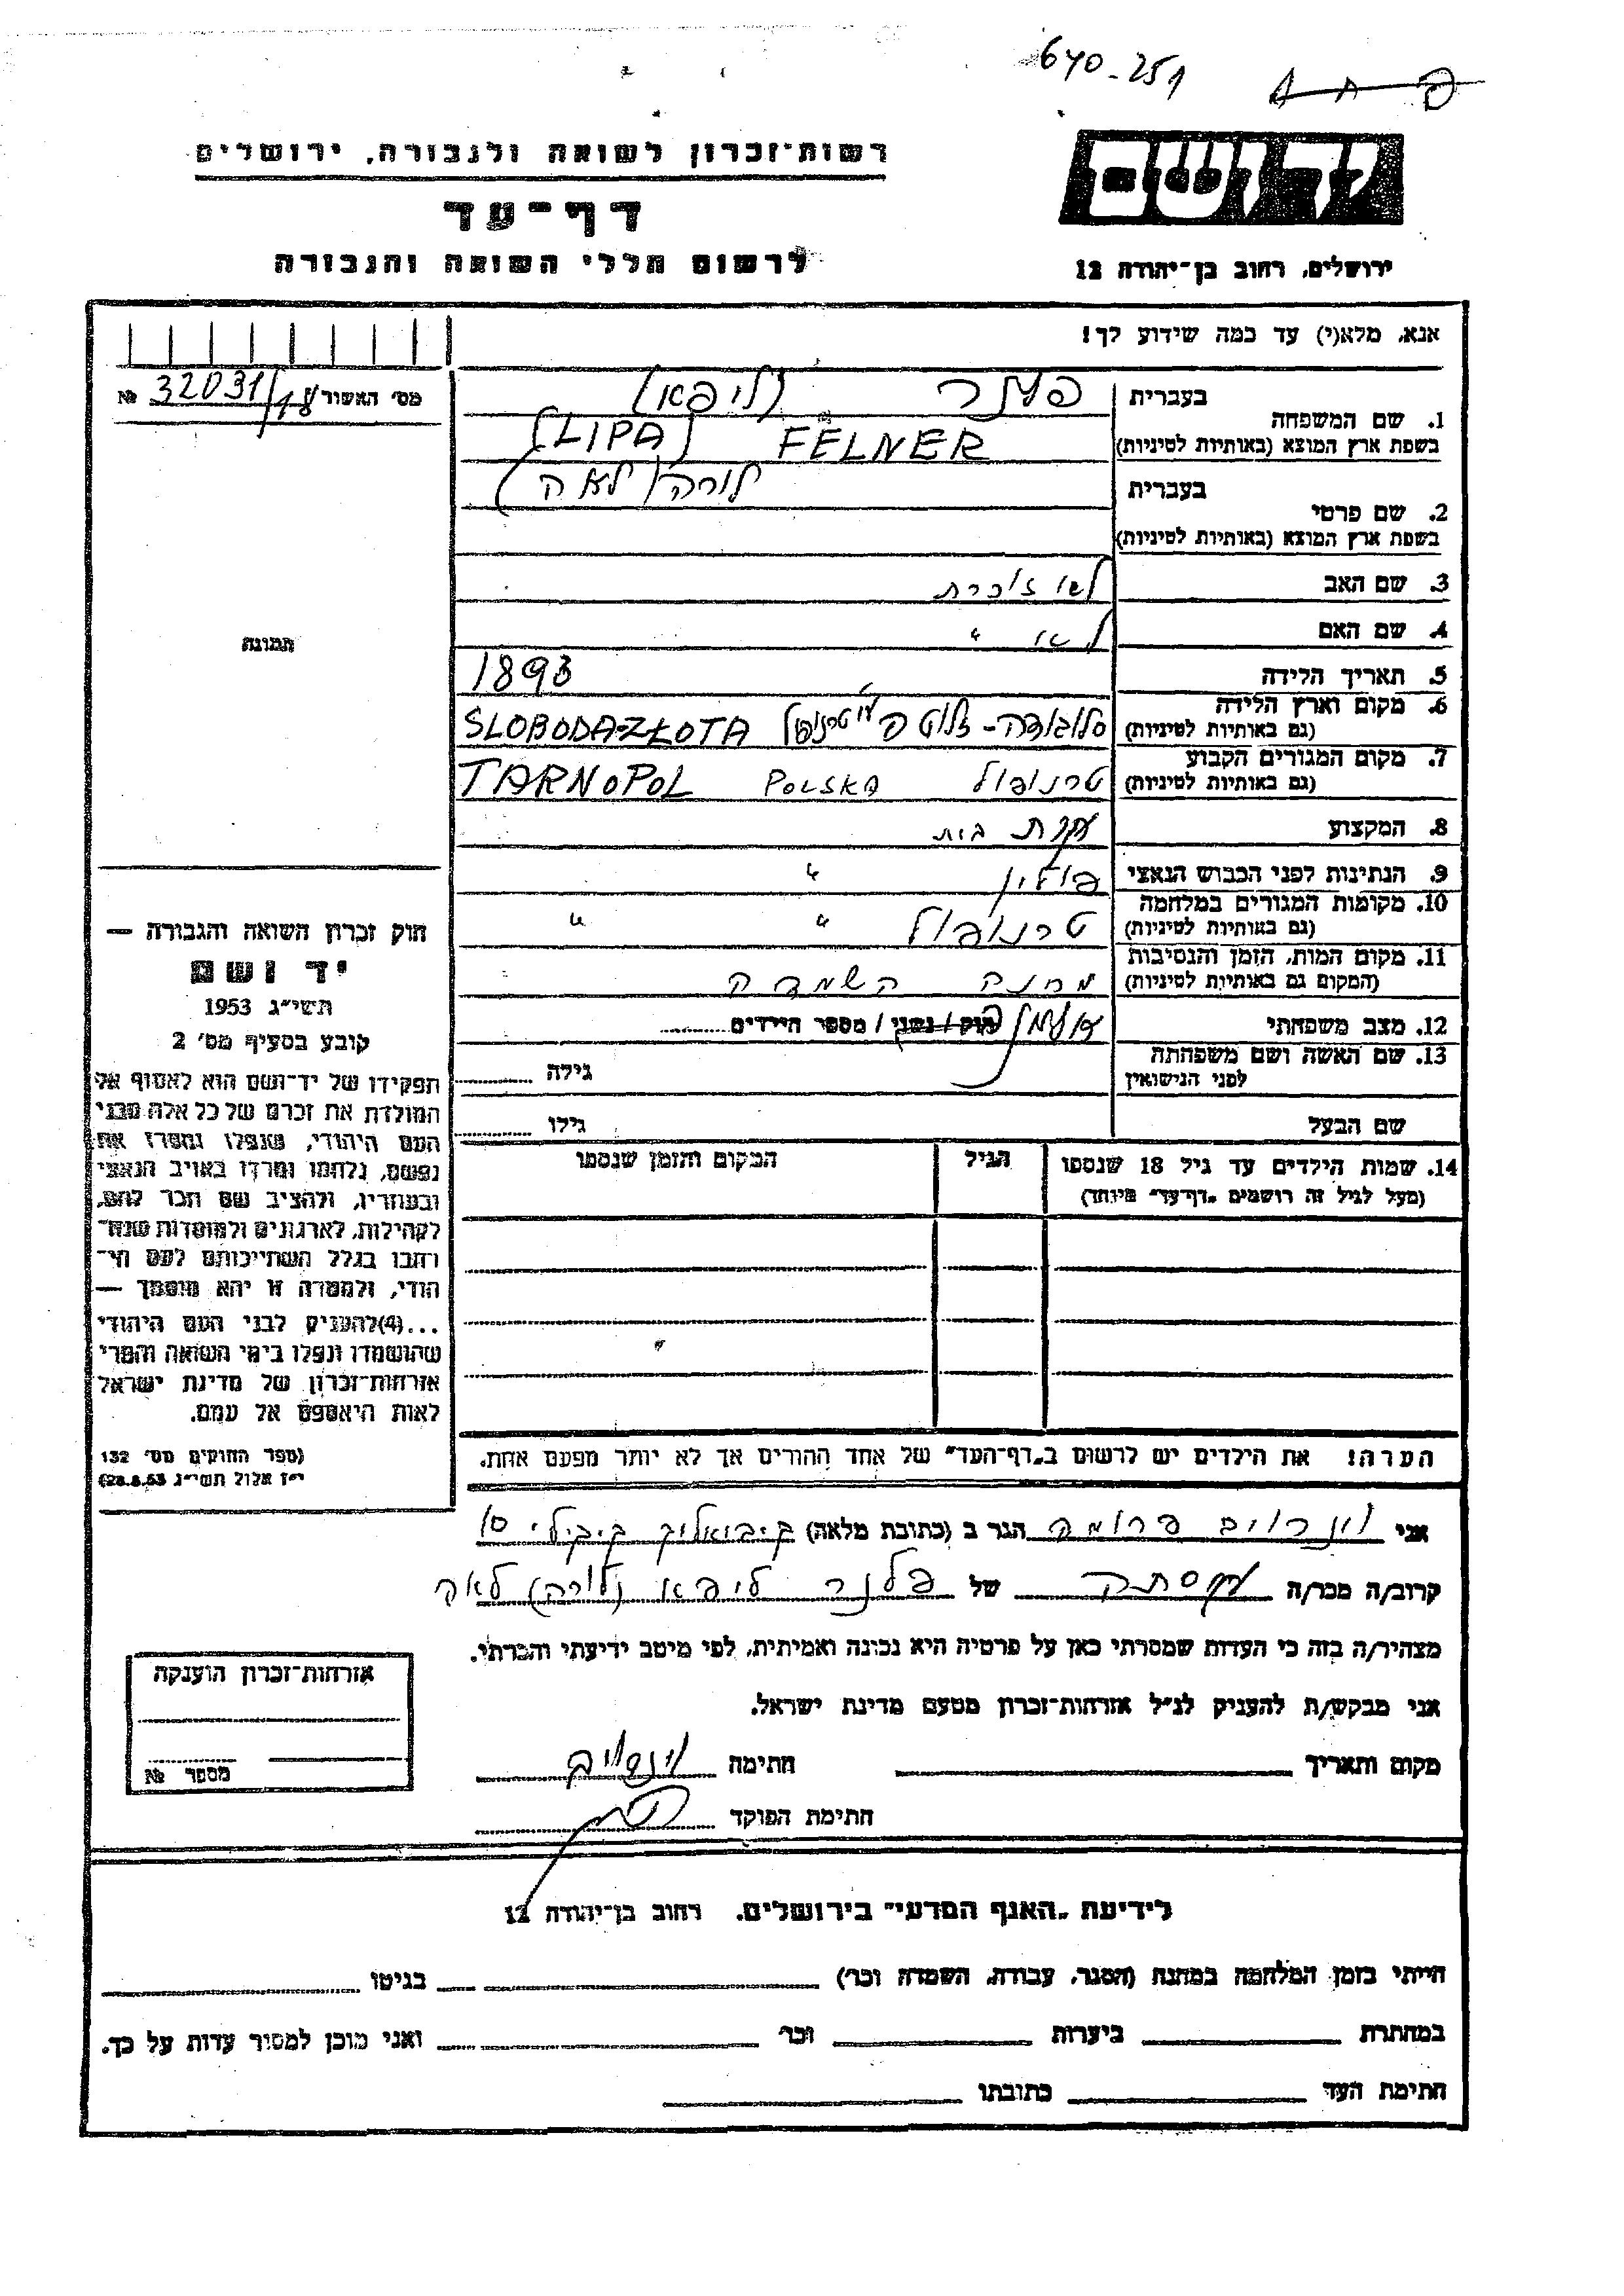 670-251
ידושם
רשות-זכרון לשואה ולגבורה, ירושלים
דף-עד
לרשום חללי השואה והגבורה
ירושלים, רחוב בן-יהודה 12
אנא, מלא(י) עד כמה שידוע לך!
מס׳ האשור 32031/18 №
תמונה
1. שם המשפחה
בעברית פלנר (ליפא)
בשפת ארץ המוצא (באותיות לטיניות) FELNER (LIPA)
2. שם פרטי
בעברית לורה (לאה)
בשפת ארץ המוצא (באותיות לטיניות)
3. שם האב לא זוכרת
4. שם האם לא "
5. תאריך הלידה 1893
6. מקום וארץ הלידה
(גם באותיות לטיניות) סלובודה-זלוטה ע״י טרנופול SLOBODA-ZŁOTA
7. מקום המגורים הקבוע
(גם באותיות לטיניות) טרנופול POLSKA TARNOPOL
8. המקצוע עקרת בית
9. הנתינות לפני הכבוש הנאצי פולין "
10. מקומות המגורים במלחמה
(גם באותיות לטיניות) טרנופול " "
11. מקום המות, הזמן והנסיבות
(המקום גם באותיות לטיניות) מחנה השמדה
12. מצב משפחתי אלמן רווק / נשוי / מספר הילדים
13. שם האשה ושם משפחתה
לפני הנישואין גילה
שם הבעל גילו
14. שמות הילדים עד גיל 18 שנספו הגיל המקום והזמן שנספו
(מעל לגיל זה רושמים „דף-עד״ מיוחד)
הערה! את הילדים יש לרשום ב„דף-העד״ של אחד ההורים אך לא יותר מפעם אחת.
חוק זכרון השואה והגבורה —
יד ושם
תשי״ג 1953
קובע בסעיף מס׳ 2
תפקידו של יד-ושם הוא לאסוף אל
המולדת את זכרם של כל אלה מבני
העם היהודי, שנפלו ומסרו את
נפשם, נלחמו ומרדו באויב הנאצי
ובעוזריו, ולהציב שם וזכר להם,
לקהילות, לארגונים ולמוסדות שנח-
רבו בגלל השתייכותם לעם הי-
הודי, ולמטרה זו יהא מוסמך —
...(4)להעניק לבני העם היהודי
שהושמדו ונפלו בימי השואה והמרי
אזרחות-זכרון של מדינת ישראל
לאות היאספם אל עמם.
(ספר החוקים מס׳ 132
י״ז אלול תשי״ג 28.8.53)
אני ונרויב פרומה הגר ב (כתובת מלאה) קיביליק קיבילי 10
קרוב/ה מכר/ה של פלנר ליפא (לורה) לאה
מצהיר/ה בזה כי העדות שמסרתי כאן על פרטיה היא נכונה ואמיתית, לפי מיטב ידיעתי והכרתי.
אני מבקש/ת להעניק לנ״ל אזרחות-זכרון מטעם מדינת ישראל.
מקום ותאריך חתימה
חתימת הפוקד
אזרחות-זכרון הוענקה
מספר №
לידיעת „האגף המדעי״ בירושלים, רחוב בן-יהודה 12
הייתי בזמן המלחמה במחנה (הסגר, עבודה, השמדה וכו׳) בגיטו
במחתרת ביערות וכו׳ ואני מוכן למסור עדות על כך.
חתימת העד כתובתו